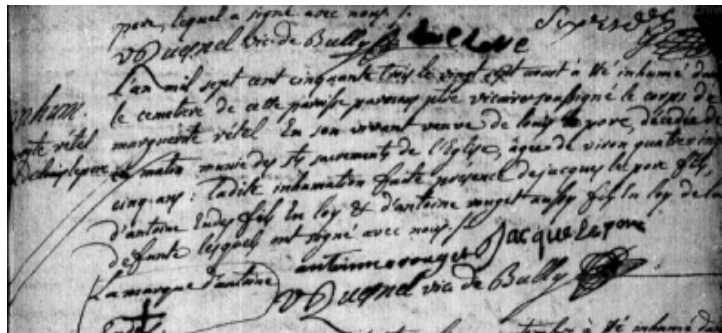 pore, lequel a signé avec nous /.
V Duquel vic de Bully
L'an mil sept cent cinquante trois le vingt sept aout a été inhumé dans
inhum. le cemetère de cette paroisse par nous ptre vicaire soussigné le corps de
rite rétel marguerite rétel En son vivant veuve de louis le pore, décédée du
de louis lepore matin munie des sts sacrements de l'Eglise, agée de viron quatre vingt
cinq ans: ladite inhumation faite presence de jacques le pore fils,
d'antoine fils En loy & d'antoine rouget aussy fils En loy de la
defunte lesquels ont signé avec nous /.
antoinne rouget Jacque Lepore
La marque d'antoine
V Duquel vic de Bully
a été inhumé